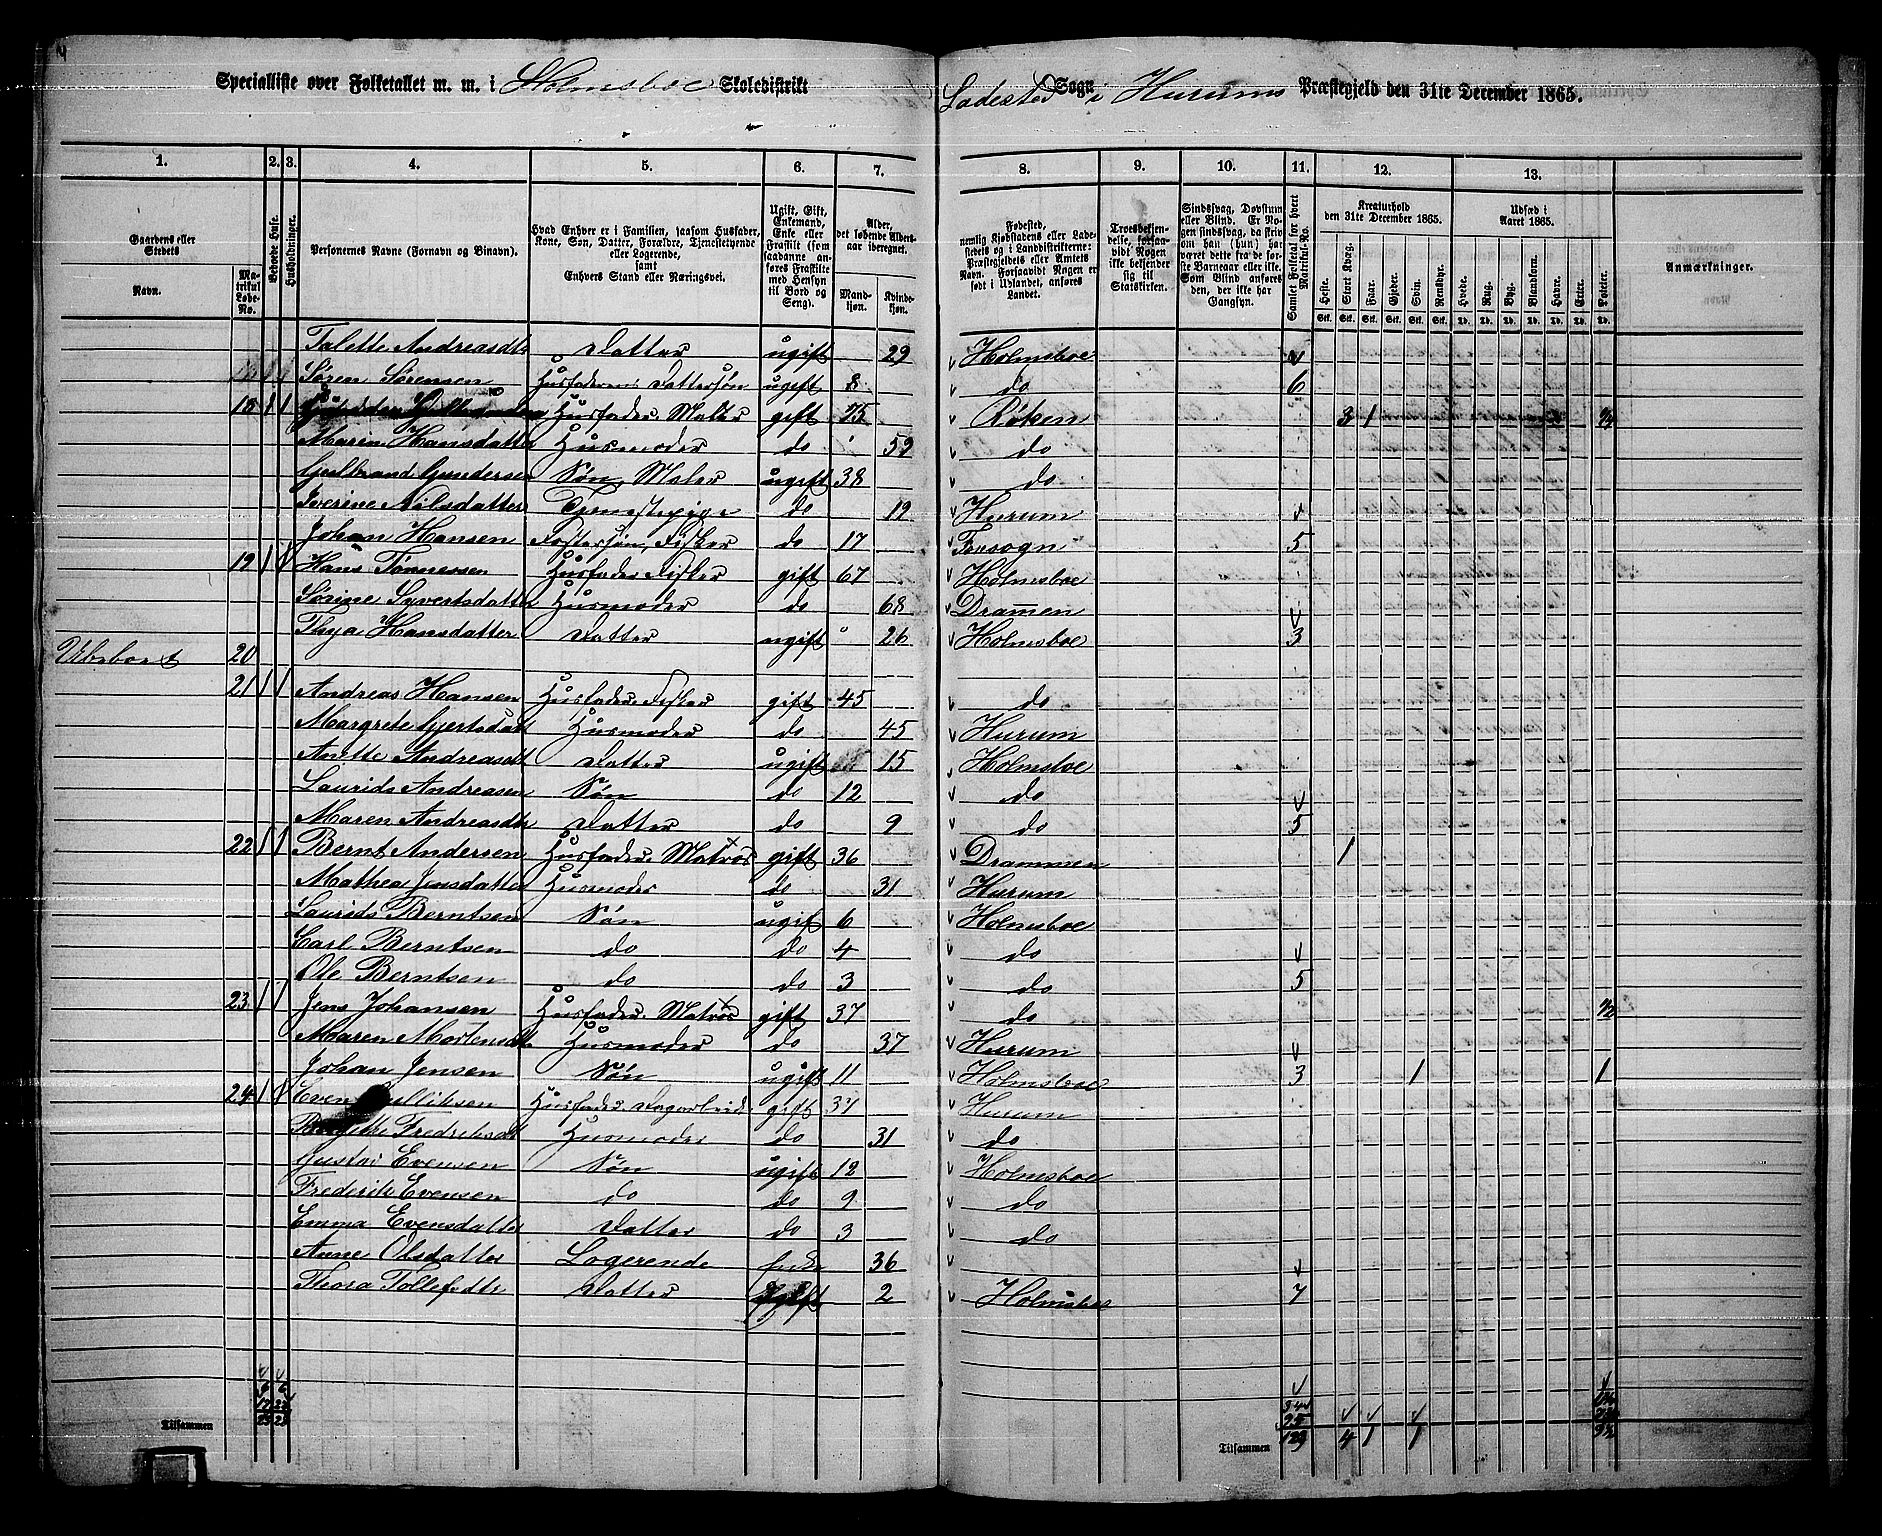 Specialliste over Folketallet m. m. i Holmsboe Skoledistrikt Ladested Sogn i Hurums Præstegjeld den 31te December 1865.
1. 2. 3. 4. 5. 6. 7. 8. 9. 10. 11. 12. 13.
Gaardens eller Stedets Navn. Matrikul Løbe-No. Beboede Huse. Husholdninger. Personernes Navne (Fornavn og Binavn). Hvad Enhver er i Familien, saasom Husfader, Kone, Søn, Datter, Forældre, Tjenestetyende eller Logerende, samt Enhvers Stand eller Næringsvei. Ugift, Gift, Enkemand, Enke eller Fraskilt (som saadanne anføres Fraskilte med Hensyn til Bord og Seng). Alder, det løbende Alders-aar iberegnet. Mandkjøn. Kvindekjøn. Fødested, nemlig Kjøbstadens eller Ladestedets og i Landdistrikterne: Præstegjeldets eller Amtets Navn. Forsaavidt Nogen er født i Udlandet, anføres Landet. Troesbekjendelse, forsaavidt Nogen ikke bekjender sig til Statskirken. Sindssvag, Døvstum eller Blind. Er Nogen sindssvag, da skrives om han (hun) har været dette fra de første Barneaar eller ikke. Som Blind anføres den, der ikke har Gangsyn. Samlet Folketal for hvert Matrikul-No. Kreaturhold den 31te December 1865. Heste. Stort Kvæg. Faar. Gjeder. Svin. Rensdyr. Udsæd i Aaret 1865. Hvede. Rug. Byg. Blandkorn. Havre. Erter. Poteter. Anmærkninger.
Talette Andreasdtr Datter ugift 29 Holmsboe
Søren Sørensen Husfaderens Dattersøn ugift 8 do 6
18 1 1 Husfader Maler gift 75 Røken 3 1
Maren Hansdatter Husmoder do 59 do
Gulbrand Gundersen Søn, Maler ugift 38 do
Iverine Nilsdatter Tjenestepige do 19 Hurum
Johan Hansen Fostersøn, Fisker do 17 5
19 1 1 Hans Tønnessen Husfader Fisker gift 67 Holmsboe
Sørine Syvertsdatter Husmoder do 68 Drammen
Thea Hansdatter Datter ugift 26 Holmsboe 3
Ubeboet 20
21 1 1 Andreas Hansen Husfader, Fisker gift 45 do
Margrete Gjertsdat Husmoder do 45 Hurum
Anette Andreasdt Datter ugift 15 Holmsboe
Laurids Andreasen Søn do 12 do
Maren Andreasdtr Datter do 9 do 5
22 1 1 Bernt Andersen Husfader, Matros gift 36 Drammen 1
Mathea Jensdatter Husmoder do 31 Hurum
Laurids Berntsen Søn ugift 6 Holmsboe
Carl Berntsen do do 4 do
Ole Berntsen do do 3 do 5
23 1 1 Jens Johansen Husfader, Matros gift 37 do 1/2
Maren Mortensdt Husmoder do 37 Hurum
Johan Jensen Søn ugift 11 Holmsboe 3 1 1
24 1 1 Even Husfader, Dagarbeid gift 37 Hurum
Fredriksdt Husmoder do 31 do
Gustav Evensen Søn ugift 12 Holmsboe
Frederik Evensen do do 9 do
Emma Evensdatter Datter do 3 do
Anne Olsdatter Logerende Enke 36
Thora Tollefsdtr Datter ugift 2 Holmsboe 7
Tilsammen 23 23 Tilsammen 129 4 1 1